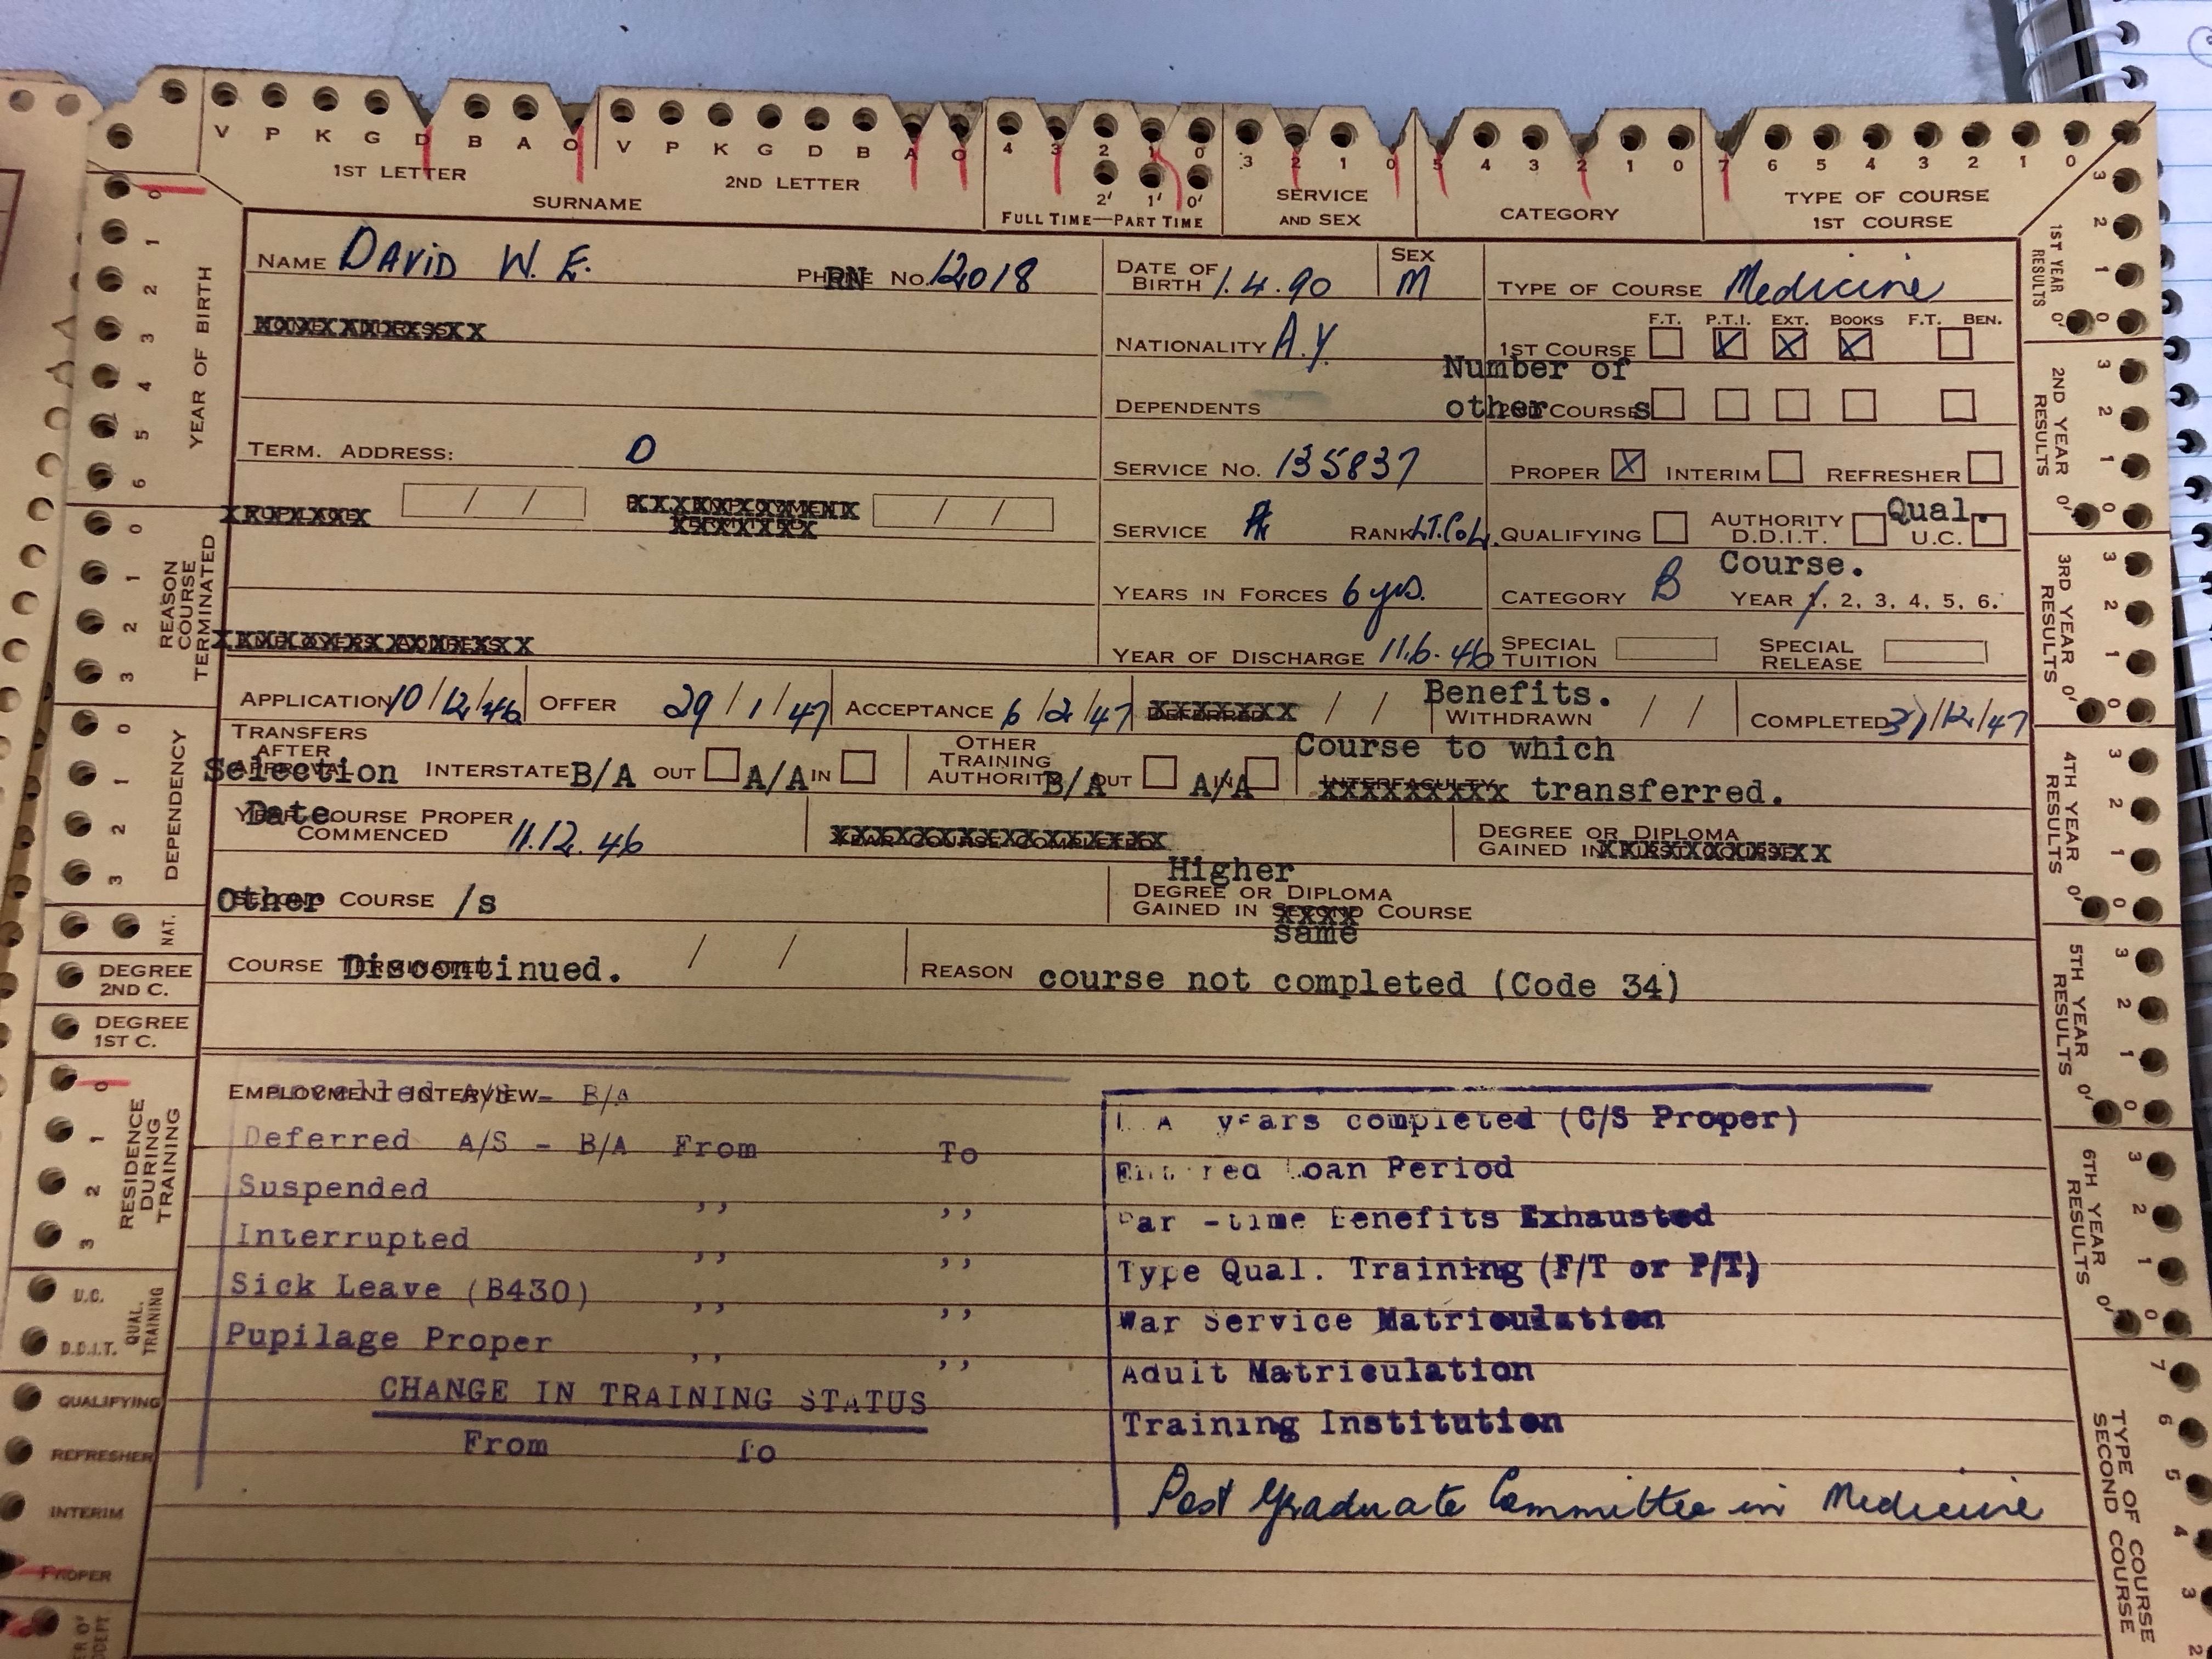 V P K G D B A O V P K G D B A O 4 3 2 1 0 3 2 1 0 5 4 3 2 1 0 7 6 5 4 3 2 1 0
2' 1' 0'
1ST LETTER 2ND LETTER
SURNAME
FULL TIME—PART TIME
SERVICE AND SEX
CATEGORY
TYPE OF COURSE
1ST COURSE
NAME DAVID W. E. RN NO. 12018
DATE OF BIRTH 1.4.90
SEX M
TYPE OF COURSE Medicine
F.T. P.T.I. EXT. BOOKS F.T. BEN.
NATIONALITY A.Y.
1ST COURSE X X X
Number of
DEPENDENTS
other COURSES
TERM. ADDRESS: O
SERVICE NO. 135837
PROPER X INTERIM REFRESHER
/ / / /
SERVICE RANK LT. COL.
QUALIFYING AUTHORITY D.D.I.T. Qual. U.C.
Course.
YEARS IN FORCES 6 yrs.
CATEGORY B YEAR 1, 2, 3, 4, 5, 6.
YEAR OF DISCHARGE 11.6.46
SPECIAL TUITION SPECIAL RELEASE
Benefits.
APPLICATION 10/12/46 OFFER 29/1/47 ACCEPTANCE 6/2/47 / / WITHDRAWN / / COMPLETED 31/12/47
TRANSFERS AFTER
Selection INTERSTATE B/A OUT A/A IN
OTHER TRAINING AUTHORITY B/A OUT A/A
Course to which
transferred.
Date COURSE PROPER
COMMENCED 11.12.46
DEGREE OR DIPLOMA
GAINED IN
Higher
Other COURSE /s
DEGREE OR DIPLOMA
GAINED IN SECOND COURSE
same
COURSE Discontinued. / /
REASON course not completed (Code 34)
EMPLOYMENT INTERVIEW
Cancelled A/S - B/A
Deferred A/S - B/A From To
Suspended ,, ,,
Interrupted ,, ,,
Sick Leave (B430) ,, ,,
Pupilage Proper ,, ,,
CHANGE IN TRAINING STATUS
From To
years completed (C/S Proper)
Entered Loan Period
Part-time Benefits Exhausted
Type Qual. Training (F/T or P/T)
War Service Matriculation
Aduit Matriculation
Training Institution
Post Graduate Committee in Medicine
0 1 2 3 4 5 6
YEAR OF BIRTH
0 1 2 3
REASON COURSE TERMINATED
0 1 2 3
DEPENDENCY
NAT.
DEGREE 2ND C.
DEGREE 1ST C.
0 1 2 3
RESIDENCE DURING TRAINING
U.C.
D.D.I.T.
QUAL. TRAINING
QUALIFYING
REFRESHER
INTERIM
PROPER
1ST YEAR RESULTS
3 2 1 0 0'
2ND YEAR RESULTS
3 2 1 0 0'
3RD YEAR RESULTS
3 2 1 0 0'
4TH YEAR RESULTS
3 2 1 0 0'
5TH YEAR RESULTS
3 2 1 0 0'
6TH YEAR RESULTS
3 2 1 0 0'
TYPE OF COURSE
SECOND COURSE
7 6 5 4 3 2